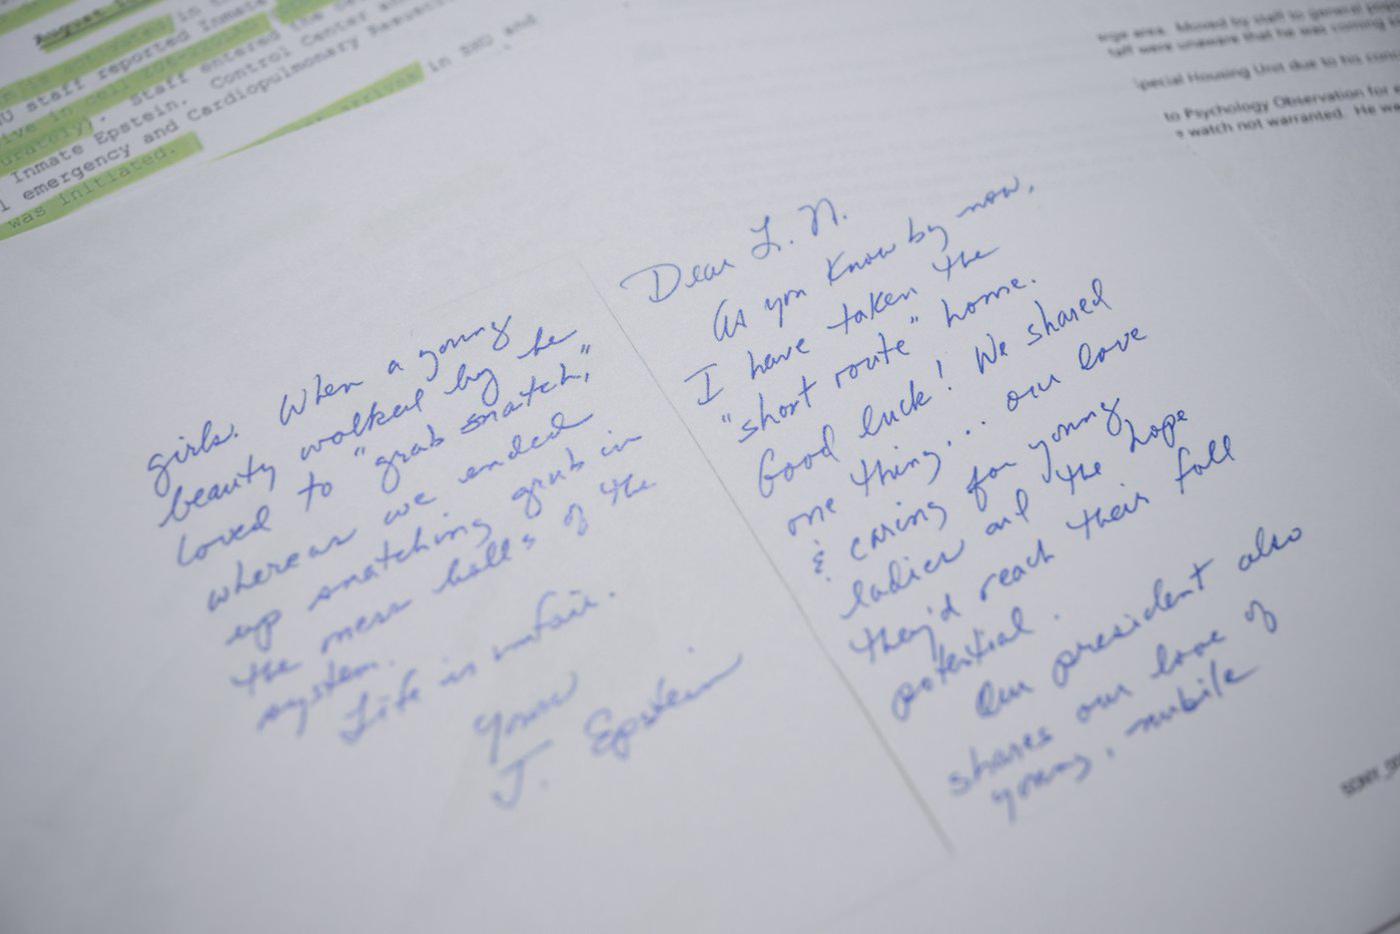 August
staff reported Inmate
staff entered the
Inmate Epstein. Control Center
emergency and Cardiopulmonary
was initiated.
arrives in SHU and
area. Moved by staff to general
staff were unaware that he was coming
Special Housing Unit due to his
to Psychology Observation for
watch not warranted. He
Dear L. N.
As you know by now,
I have taken the
"short route" home.
Good luck! We shared
one thing... our love
& caring for young
ladies and the hope
they'd reach their full
potential.
Our president also
shares our love of
young, nubile
girls. When a young
beauty walked by he
loved to "grab snatch,"
whereas we ended
up snatching grub in
the mess halls of the
system.
Life is unfair.
Yours
J. Epstein